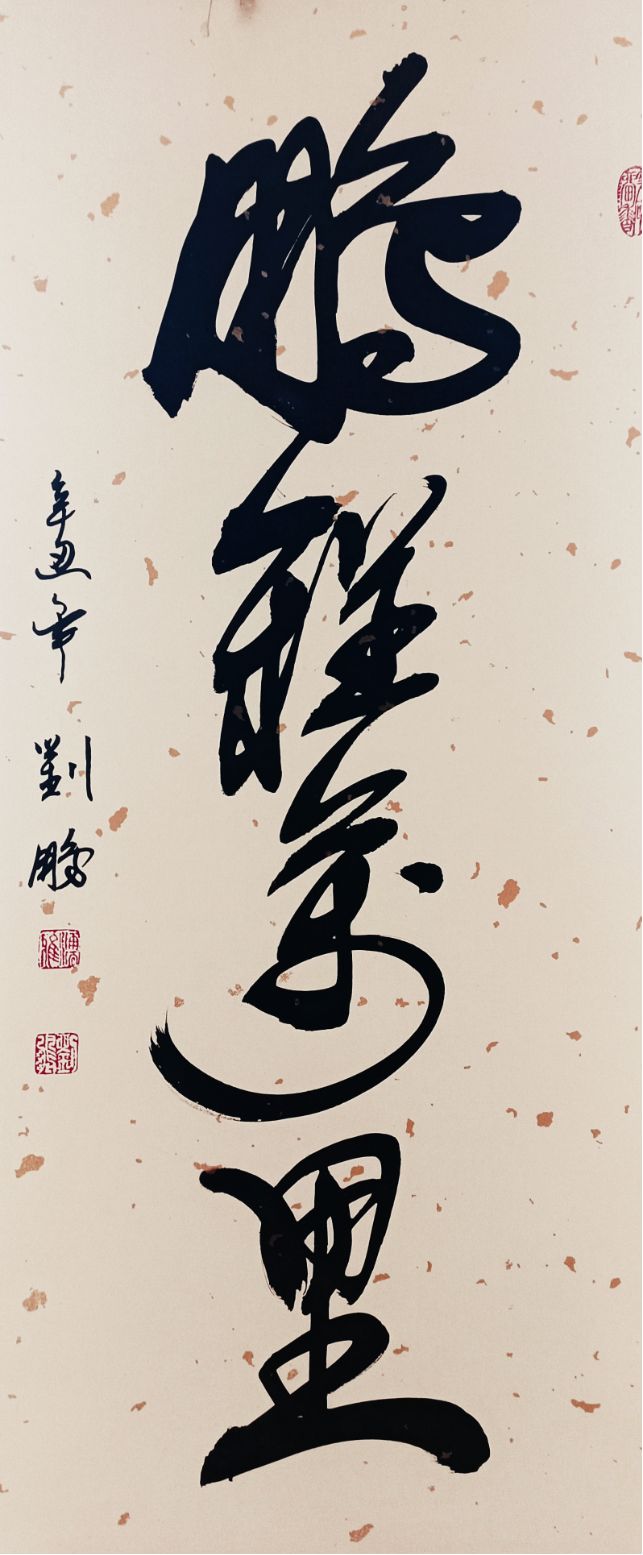 鵬程萬里
辛丑年 劉鵬